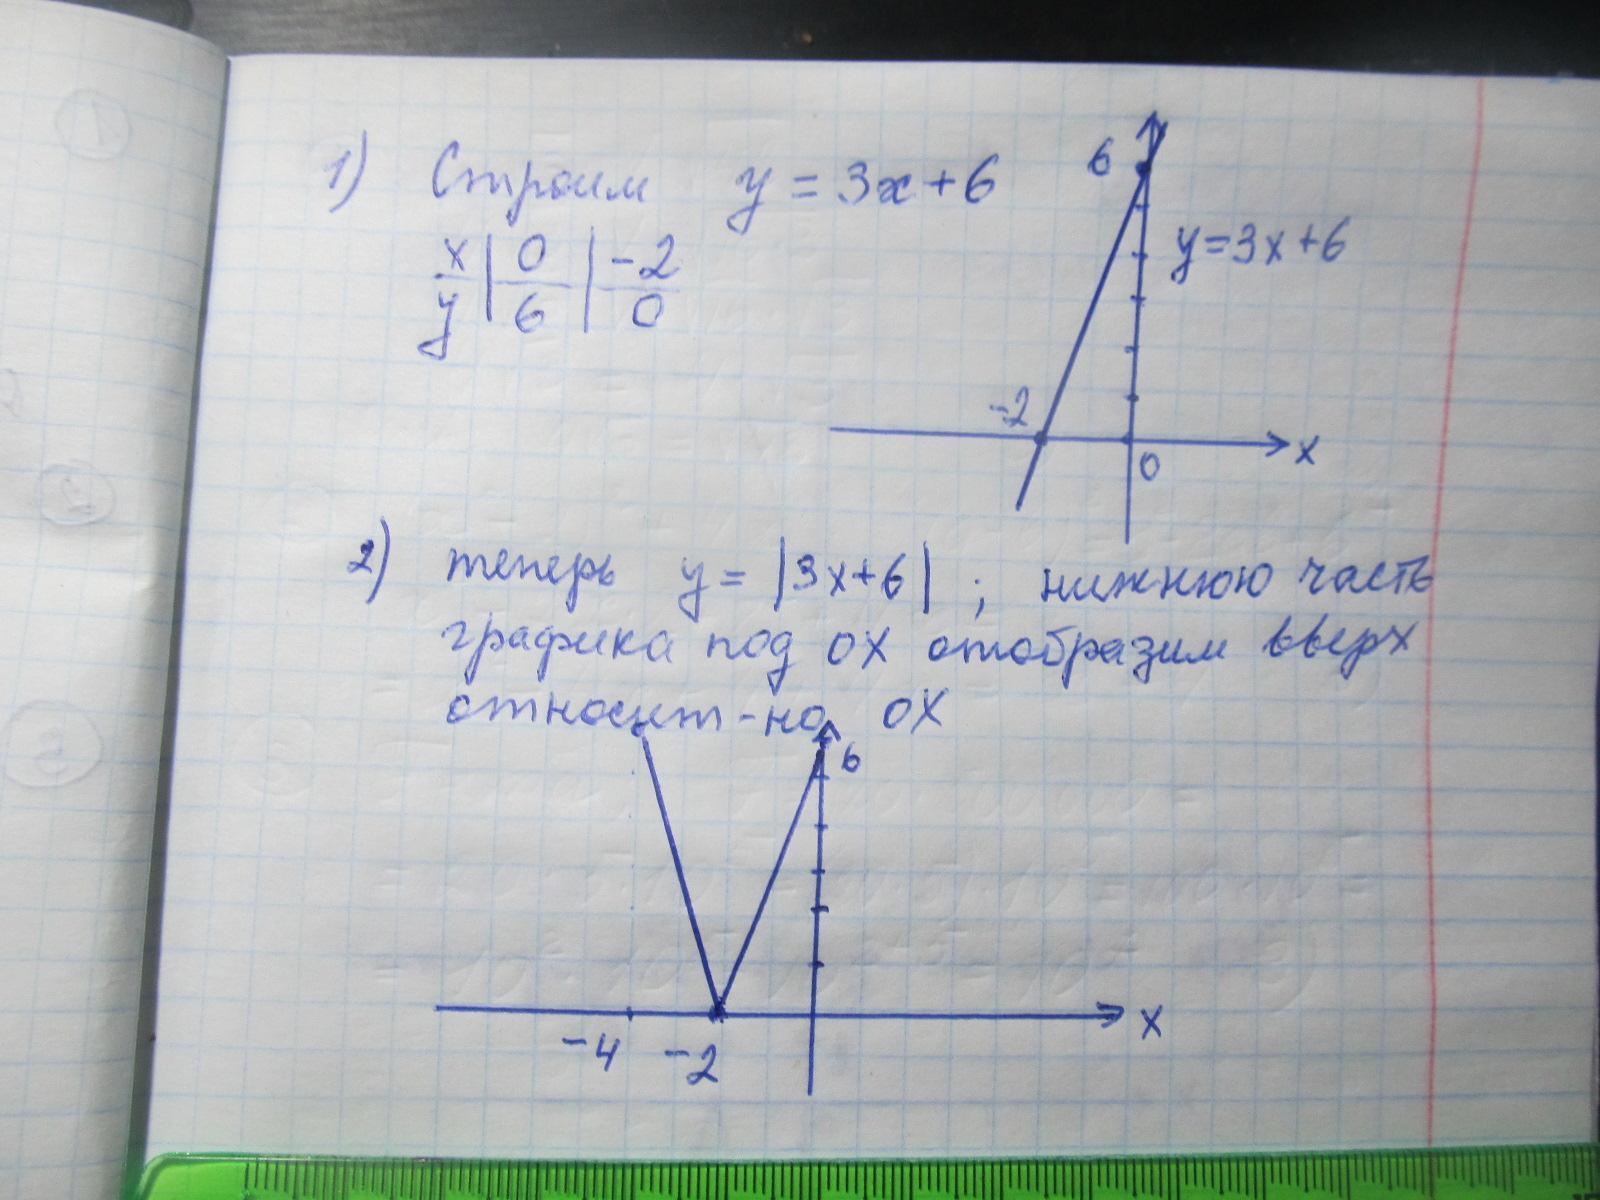 1) Строим y = 3x+6
x | 0 | -2
y | 6 | 0
6
y=3x+6
-2
0
x
2) теперь y = |3x+6| ; нижнюю часть
графика под OX отобразим вверх
относит-но OX
6
-4 -2
x